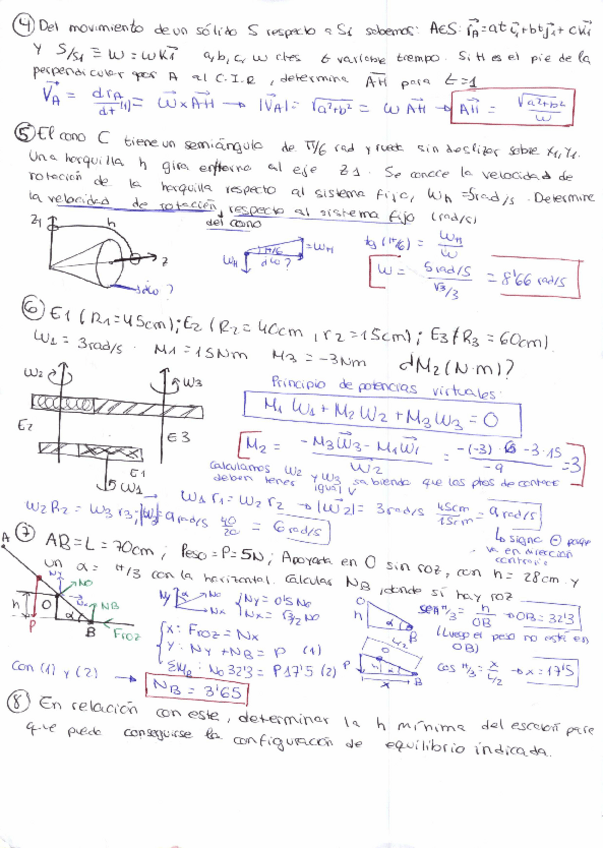 ④ Del movimiento de un sólido S respecto a S1 sabemos: A∈S: r̄A = at i1 + bt j1 + c k1
y S/S1 ≡ ω̄ = ω k̄1 a, b, c, ω ctes t variable tiempo. Si H es el pie de la
perpendicular por A al C.I.R, determina AH para t=1
VA = drA/dt (1) = ω × AH → |VA| = √(a²+b²) = ω AH → AH = √(a²+b²)/ω
⑤ El cono C tiene un semiángulo de π/6 rad y rueda sin deslizar sobre X1, Y1.
Una horquilla h gira entorno al eje Z1. Se conoce la velocidad de
rotación de la horquilla respecto al sistema fijo, ωh = 5 rad/s. Determine
la velocidad de rotación del cono respecto al sistema fijo (rad/s)
Z1 h Z ¿ω?
ωH π/6 ¿ω? = ωH
tg(π/6) = ωH/ω
ω = 5 rad/s / (√3/3) = 8'66 rad/s
⑥ E1 (R1 = 45cm); E2 (R2 = 40cm, r2 = 15cm); E3 (R3 = 60cm).
ω1 = 3 rad/s · M1 = 15Nm M3 = -3Nm ¿M2 (N·m)?
ω2 ω3 E2 E3 E1 ω1
Principio de potencias virtuales:
M1 ω1 + M2 ω2 + M3 ω3 = 0
M2 = (-M3 ω3 - M1 ω1)/ω2 = (-(-3)·6 - 3·15)/-9 = 3
Calculamos ω2 y ω3 sabiendo que los ptos de contacto
deben tener igual V
ω1 r1 = ω2 r2 → |ω2| = 3 rad/s 45cm/15cm = 9 rad/s
↳ signo ⊖ porque
va en dirección
contraria
ω2 R2 = ω3 r3; |ω3| = 9 rad/s 40/20 = 6 rad/s
⑦ AB = L = 70cm; Peso = P = 5N; Apoyada en O sin roz, con h = 28cm y
un α = π/3 con la horizontal. Calculas NB, donde si hay roz
A Ny No Nx NB h O α P B Froz
Ny No α Nx
{ Ny = 0'5 No
Nx = √3/2 No
O h α B
sen π/3 = h/OB → OB = 32'3
(Luego el peso no está en
OB)
{ X: Froz = Nx
Y: Ny + NB = P (1)
ΣMB: No 32'3 = P 17'5 (2)
P O L/2 h α B x
cos π/3 = x/(L/2) → x = 17'5
con (1) y (2) → NB = 3'65
⑧ En relación con este, determinar la h mínima del escalón para
que pueda conseguirse la configuración de equilibrio indicada.